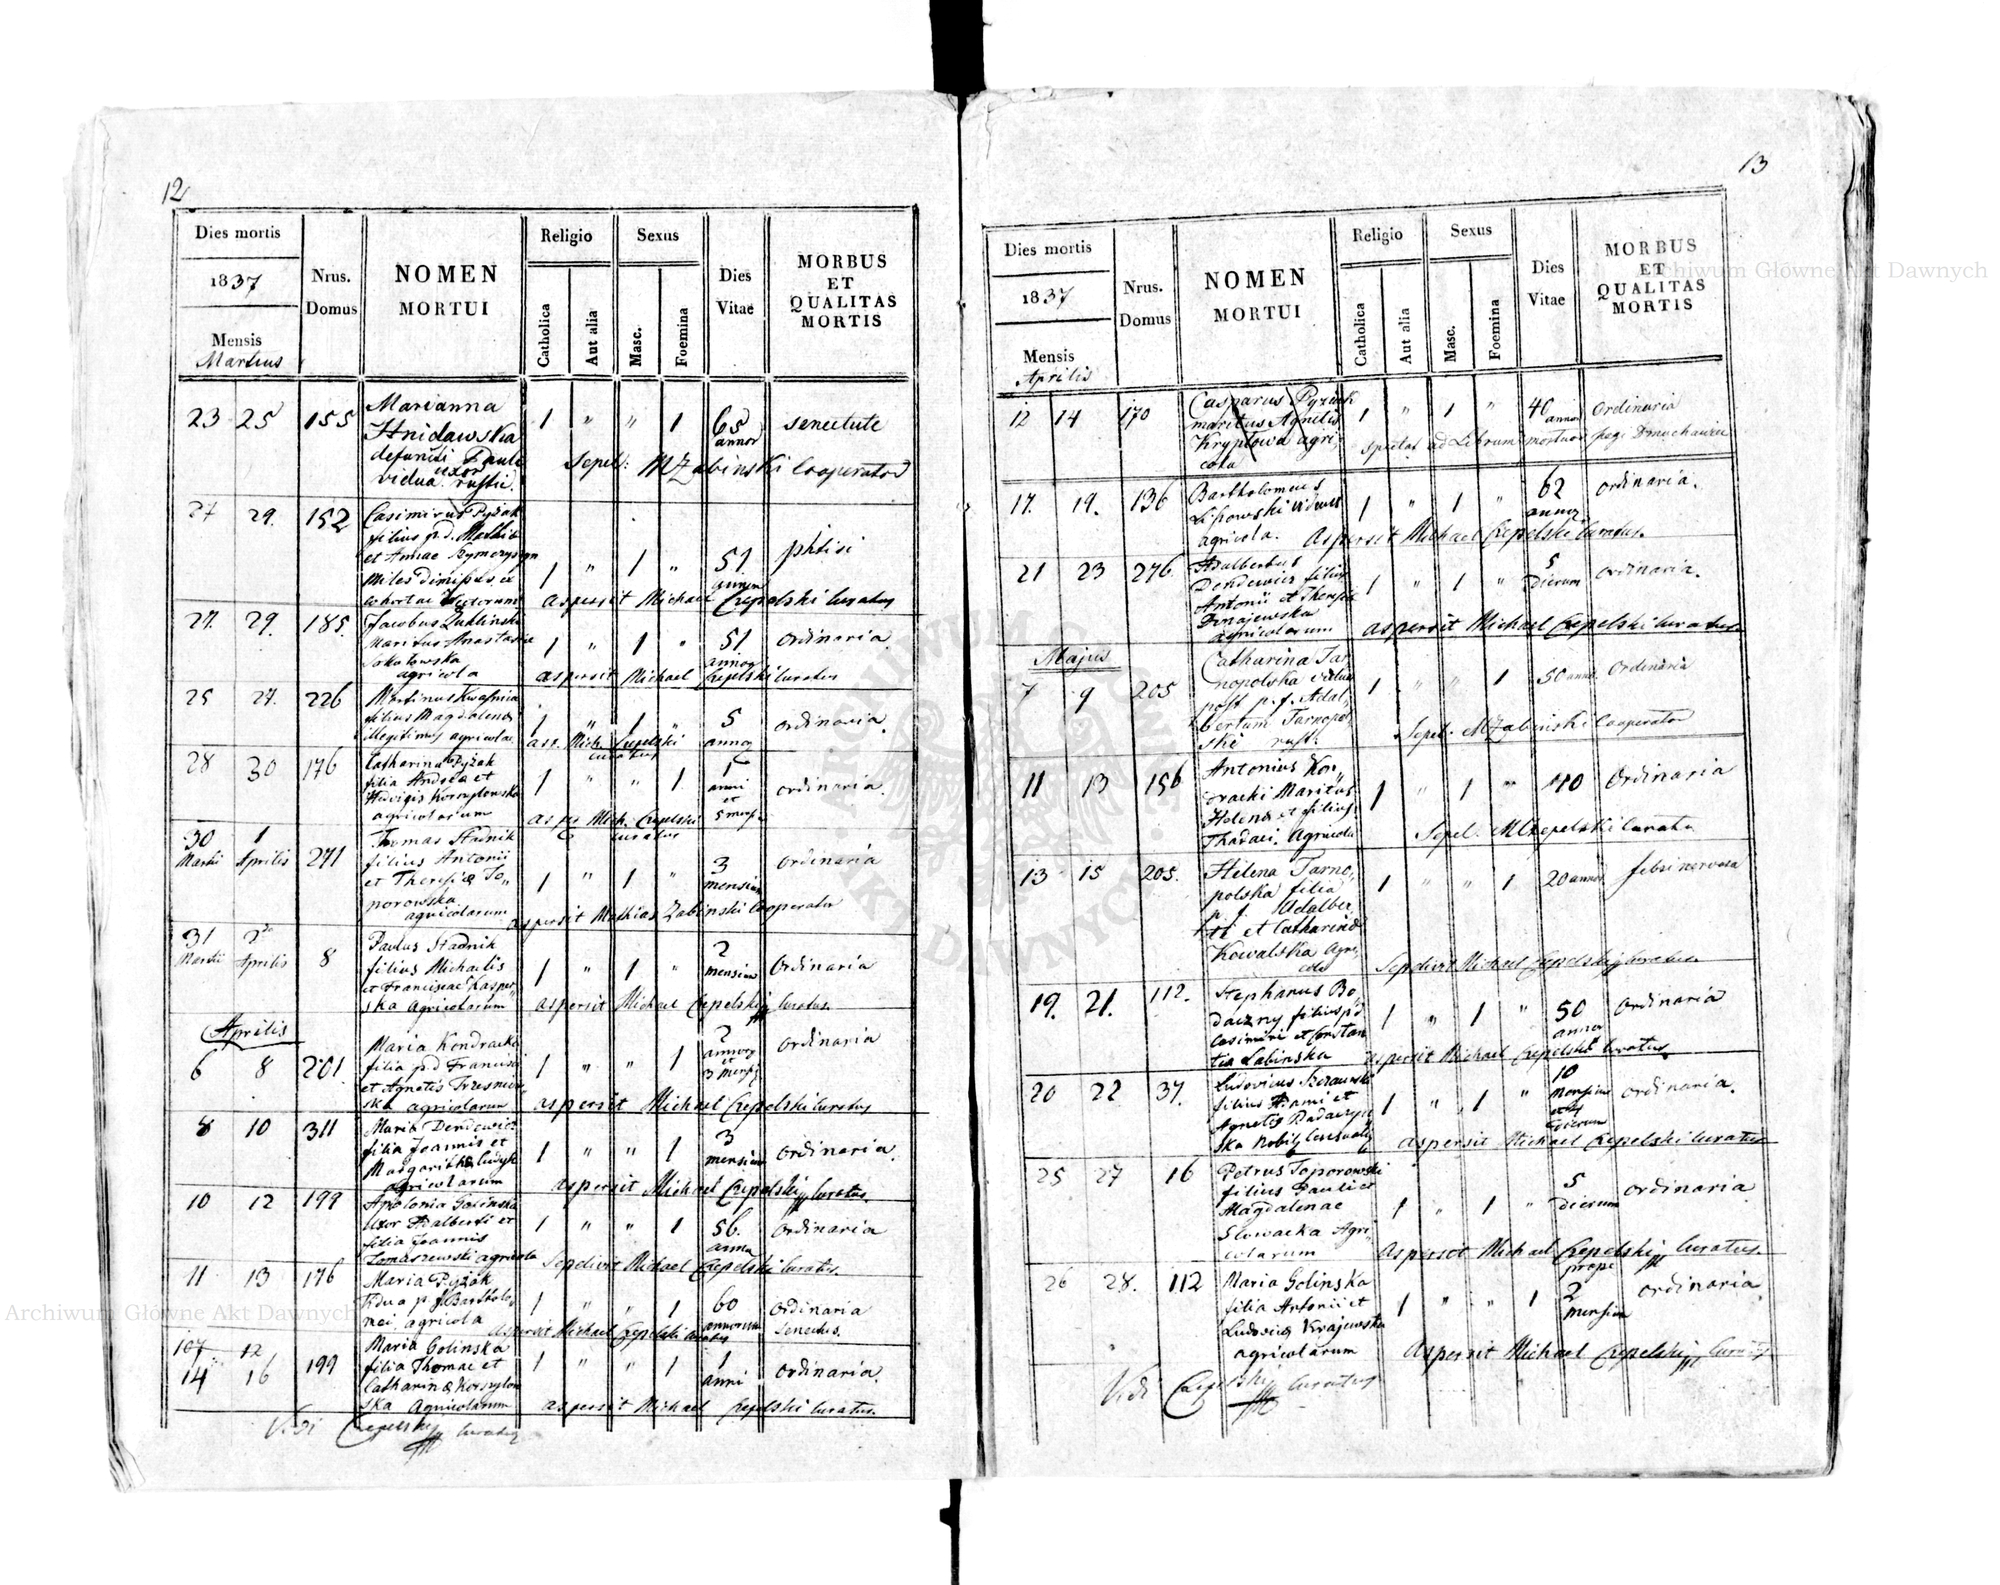 12
Dies mortis
1837
Mensis
Martius
Nrus.
Domus
NOMEN
MORTUI
Religio
Catholica
Aut alia
Sexus
Masc.
Foemina
Dies
Vitae
MORBUS
ET
QUALITAS
MORTIS
23 25 155 Marianna 1 " " 1 65 senectute
Hnidawska annor
defuncti Pauli
vidua uxor rustic. Sepel: MZabinski Cooperator
27 29. 152 Casimirus Pyżak
filius p.d. Mathiæ
et Annae
miles dimissus ex 1 " 1 " 51 phtisi
cohortae annor
aspersit Michael Czepelski Curatus
27. 29. 185. Jacobus
Maritus Anastasiae 1 " 1 " 51 ordinaria
Sokołowska annor
agricola aspersit Michael Czepelski Curatus
25 27. 226 Martinus Kwaśnia
filius Magdalenæ 1 " 1 " 5 ordinaria.
illegitimus agricolae annor
asp. Mich. Czepelski curatus
28 30 176 Catharina Pyżak
filia Andrea et 1 " " 1 1 ordinaria.
Hedvigis Korzyłowska anni
agricolarum et
5 mens.
asper Mich. Czepelski curatus
30 1 Thomas Stadnik
Martii Aprilis 271 filius Antonii 3 ordinaria
et Theresiæ To„ 1 " 1 " mensium
porowska
agricolarum
aspersit Mathias Zabinski Cooperator
31 2 Paulus Stadnik
Martii Aprilis 8 filius Michaelis 2 Ordinaria
et Franciscae Kasper„ 1 " 1 " mensium
ska Agricolarum aspersit Michael Czepelski Curatus.
Aprilis
6 8 201. Maria Kondracka 2 ordinaria
filia p.d Francisci 1 " " 1 annor
et Agnetis et
ska agricolarum 3 mens
aspersit Michael Czepelski Curatus
8 10 311 Maria Dendewicz
filia Joannis et 1 " " 1 3 ordinaria.
Margarithæ mensium
agricolarum aspersit Michael Czepelski Curatus.
10 12 199 Apolonia Golinska
uxor Adalberti et 1 " " 1 56. ordinaria
filia Joannis anno
Tomaszewski agricola Sepelivit Michael Czepelski Curatus.
11 13 176 Maria Pyżak
vidua p. f Bartholo„ 1 " " 1 60 ordinaria
mei agricola annorum Senectus.
aspersit Michael Czepelski Curatus
107 12
14 16 199 Maria Golinska
filia Thomae et 1 " " 1 1 ordinaria.
Catharinæ Korzyłow anni
ska Agricolarum aspersit Michael Czepelski Curatus.
Vidi Czepelski Curatus
13
Dies mortis
1837
Mensis
Aprilis
Nrus.
Domus
NOMEN
MORTUI
Religio
Catholica
Aut alia
Sexus
Masc.
Foemina
Dies
Vitae
MORBUS
ET
QUALITAS
MORTIS
12 14 170 Casparus Pyżak 1 " 1 " 40 Ordinaria
maritus Agnetis annor
Kryptowa agri„ spectat ad Librum mortuor pagi Dmuchawiec
cola
17. 19. 136 Bartholomeus 62 ordinaria.
Lipowski viduus 1 " 1 " annor
agricola. Aspersit Michael Czepelski Curatus.
21 23 276 Adalbertus 5
Dendewicz filius 1 " 1 " Dierum ordinaria.
Antonii et Theresiæ
Dunajewska
agricolarum aspersit Michael Czepelski Curatus
Majus
7 9 205 Catharina Tar„
nopolska vidua 1 " " 1 50 anno. Ordinaria
post p. f. Adal„
bertum Tarnopol„
ski rust: Sepel. MZabinski Cooperator
11 13 156 Antonius Kon„
dracki Maritus 1 " 1 " 40 Ordinaria
Helenæ et filius
Thadaei. Agricola Sepel. MCzepelski Curatus
13 15 205. Helena Tarno„
polska filia 1 " " 1 20 annor febri nervosa
p. f. Adalber„
ti et Catharinæ
Kowalska Agri„
cola Sepelivit Michael Czepelski Curatus.
19. 21. 112. Stephanus Bo„
daczny filius p.d 1 " 1 " 50 ordinaria
Casimiri et Constan annor
tia Labinska aspersit Michael Czepelski Curatus
20 22 37. Ludovicus 10
filius Adami et 1 " 1 " Mensium ordinaria.
Agnetis Badaczyń et
ska Nobil. Dierum
aspersit Michael Czepelski Curatus
25 27 16 Petrus Toporowski
filius Pauli et 1 " 1 " 5 ordinaria
Magdalenae Dierum
Słowacka Agri„
colarum aspersit Michael Czepelski Curatus.
26 28. 112 Maria Golinska prope
filia Antonii et 1 " " 1 2 ordinaria.
Ludovicæ Krajewska mensium
agricolarum aspersit Michael Czepelski Curatus
Vidi Czepelski Curatus
Archiwum Główne Akt Dawnych
Archiwum Główne Akt Dawnych
ARCHIWUM GŁÓWNE AKT DAWNYCH